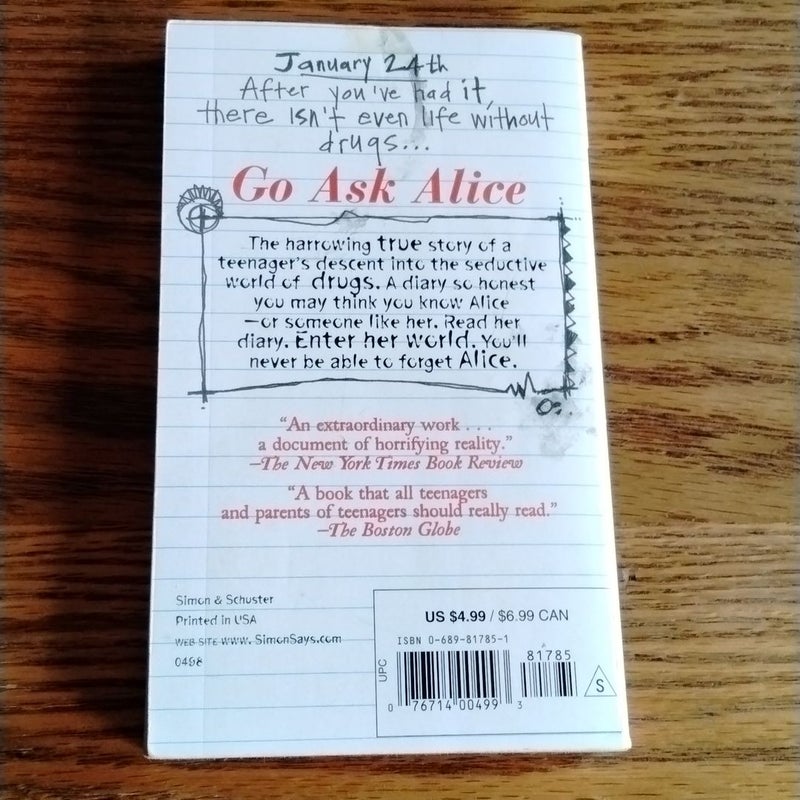 January 24th
After you've had it,
there isn't even life without
drugs...
Go Ask Alice
The harrowing true story of a
teenager's descent into the seductive
world of drugs. A diary so honest
you may think you know Alice
—or someone like her. Read her
diary. Enter her world. You'll
never be able to forget Alice.
"An extraordinary work . . .
a document of horrifying reality."
—The New York Times Book Review
"A book that all teenagers
and parents of teenagers should really read."
—The Boston Globe
Simon & Schuster
Printed in USA
WEB SITE www.SimonSays.com
0498
US $4.99 / $6.99 CAN
ISBN 0-689-81785-1
81785
UPC
S
0 76714 00499 3